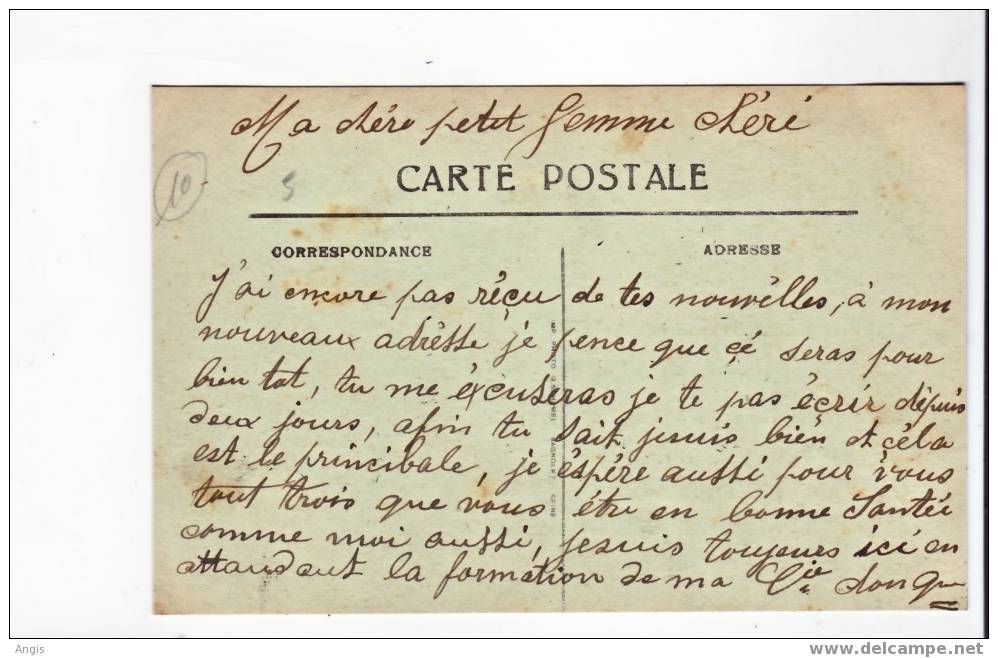 Ma chére petit femme chéri
10
5
CARTE POSTALE
CORRESPONDANCE
ADRESSE
J'ai encore pas réçu de tes nouvélles, à mon
nouveaux adrésse je pence que çé seras pour
bien tot, tu me éxcuseras je te pas écrir dépuis
deux jours, afin tu sait jesuis bién et céla
est le principale, je éspére aussi pour vous
tout trois que vous étu en bonne Santéé
comme moi aussi, jesuis toujours ici en
attandant la formation de ma Cie donque
Angis
delcampe.net